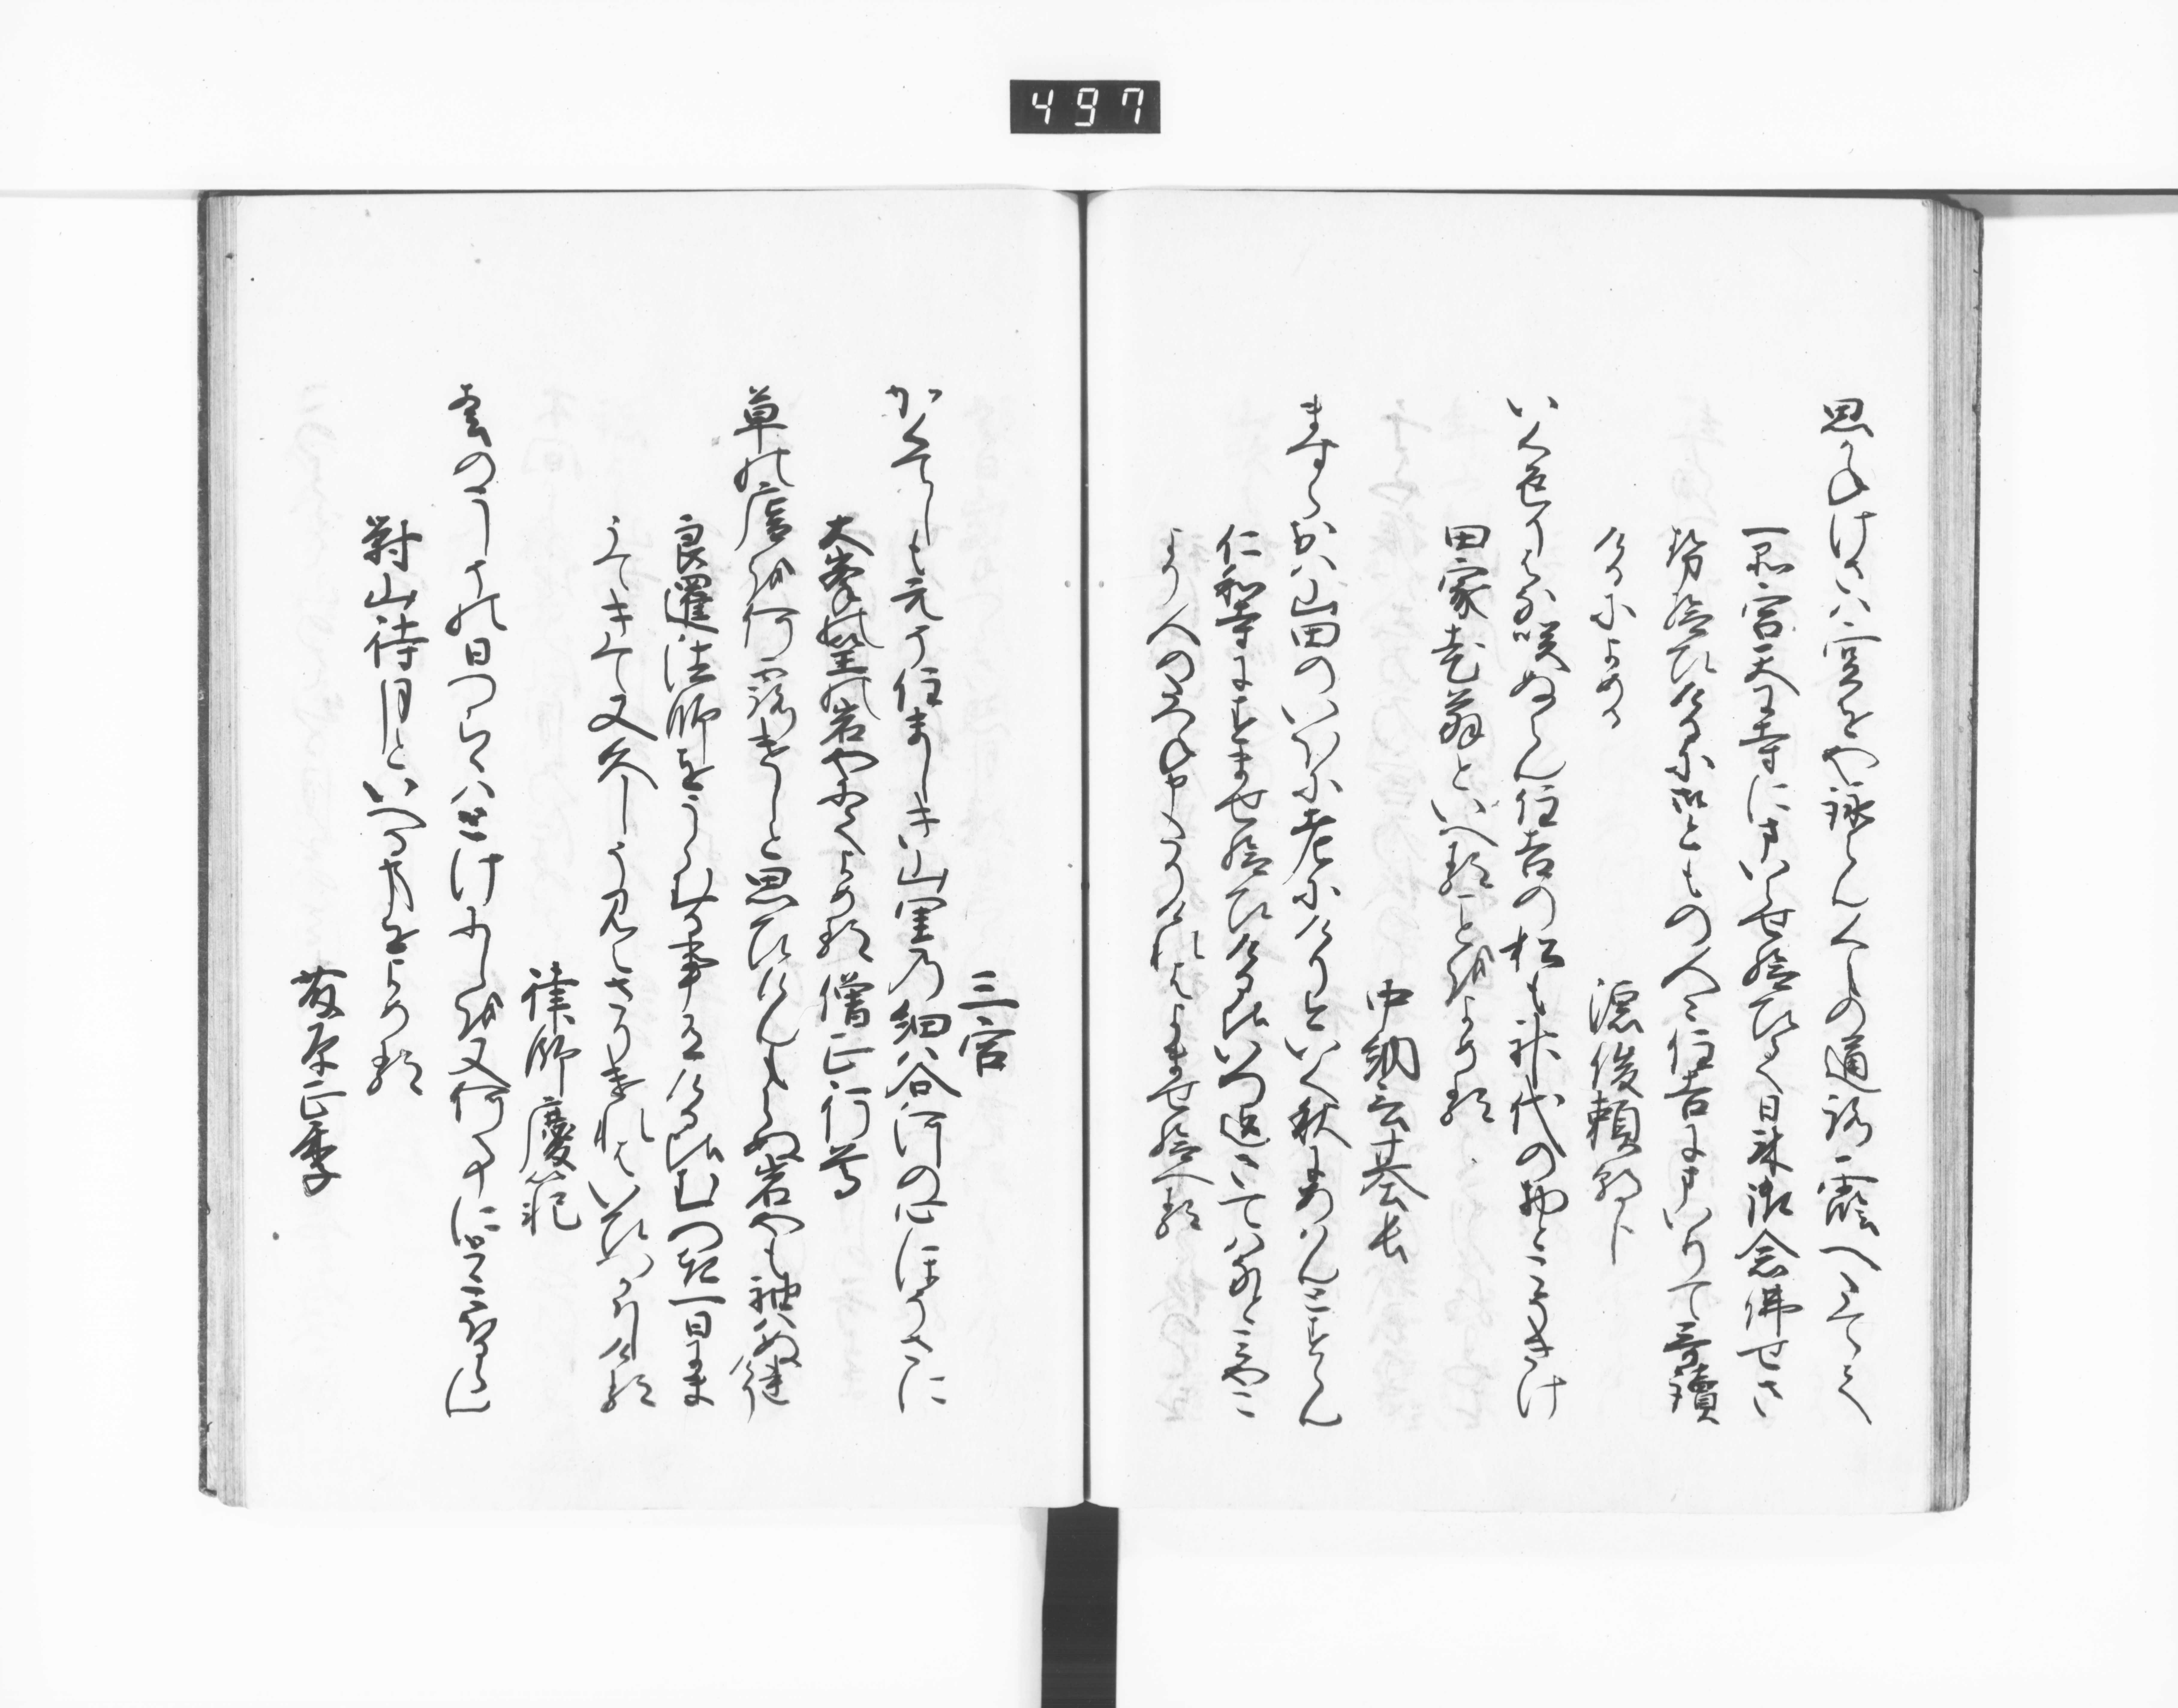 497
思かねけさハ空をや詠らん雲の通路霞へたてゝ
一品宮天王寺にまいらせ給ひて日来御念佛せさ
勢給ひけるに御ともの人々住吉にまいりて哥讀
けるによめる
源俊頼朝臣
いくかへり花咲ぬらん住吉の松も神代の物とこそきけ
田家老翁といへることをよめる
中納言基長
ますらおハ山田のいほに老にけりいまいく秋にあはんとすらん
仁和寺にすませ給ひける比いつ迄さてハなとみやこ
より人のたつね申たりけれはよませ給へる
三宮
かくてしもえそ住ましき山里の細谷河の心ほそさに
大峯の笙の岩やにてよめる 僧正行尊
草の庵を何露けしと思ひけんもらぬ岩やも袖ハぬれけり
良暹法師をうらむる事有ける比むつき一日にま
うてきて又久しう見えさりけれはいひつかはしける
律師慶範
春のこし其日つらゝハとけにしを又何事にとゝこほるらん
對山待月といへる事をよめる
藤原正季